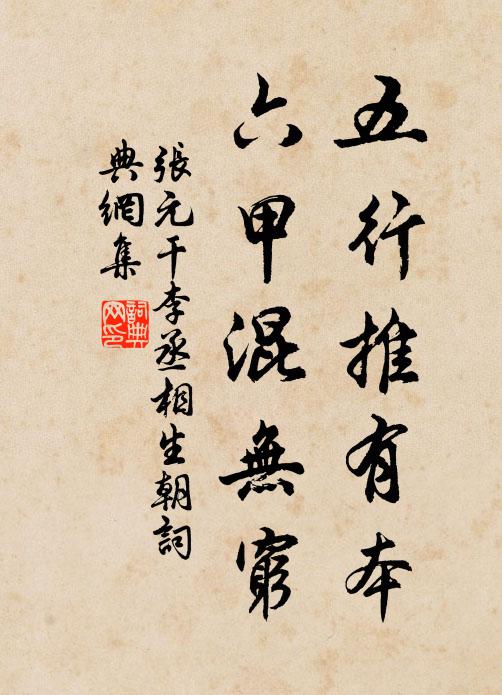 五行推有本
六甲混無窮
張元干李丞相生朝詞
典網集
詞典網印